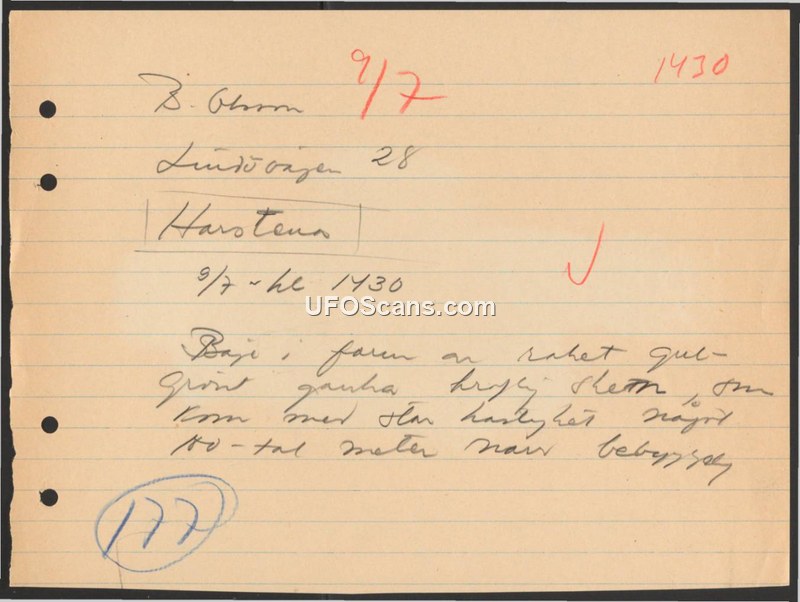 9/7 1430
B. Olsson
Lindövägen 28
Harstena
9/7 - kl 1430
UFOScans.com
i form av raket gul-
grönt ganska kraftig sken, som
kom med stor hastighet något
100-tal meter
177